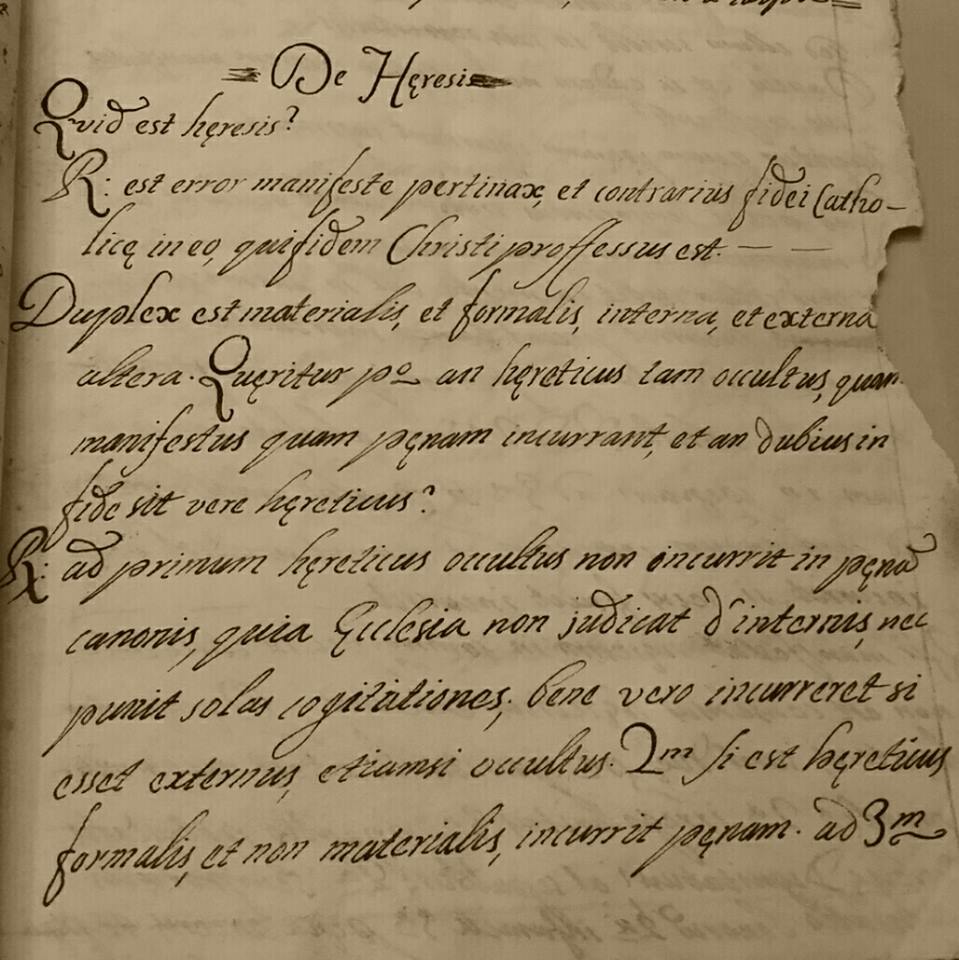 De Hęresis
Quid est hęresis?
R: est error manifeste pertinax, et contrarius fidei Catho-
licę in eo, qui fidem Christi proffessus est. — —
Duplex est materialis, et formalis, interna, et externa
altera. Quęritur po an hęreticus tam occultus, quam
manifestus quam pęnam incurrant, et an dubius in
fide sit vere hęreticus?
R: ad primum hęreticus occultus non incurrit in pęnã
canonis, quia Ecclesia non judicat d'internis, nec
punit solas cogitationes; bene vero incurreret si
esset externus, etiamsi occultus. 2m si est hęreticus
formalis, et non materialis, incurrit pęnam. ad 3m